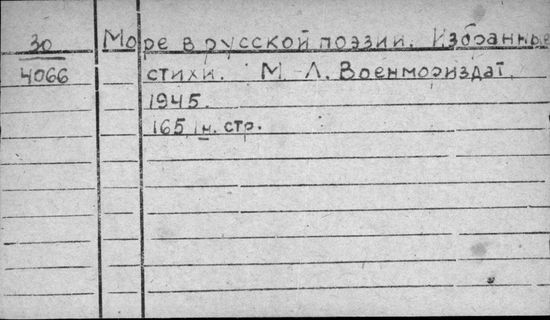 30
4066
Море в русской поэзии. Избранные
стихи. М.-Л. Военмориздат,
1945.
165, 1н. стр.